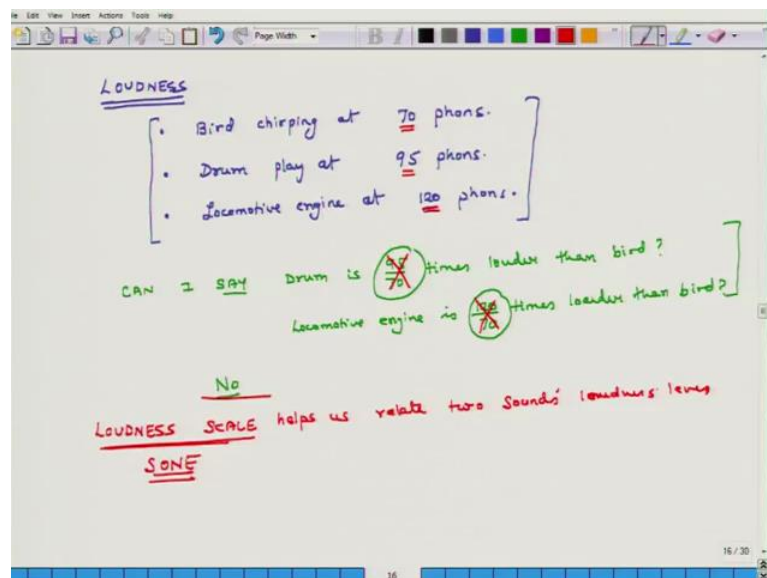 Edit View Insert Actions Tools Help
Page Width
B I
LOUDNESS
• Bird chirping at 70 phons.
• Drum play at 95 phons.
• Locomotive engine at 120 phons.
CAN I SAY Drum is 95/70 times louder than bird?
Locomotive engine is 120/70 times louder than bird?
No
LOUDNESS SCALE helps us relate two sounds' loudness levels
SONE
16 / 30
16